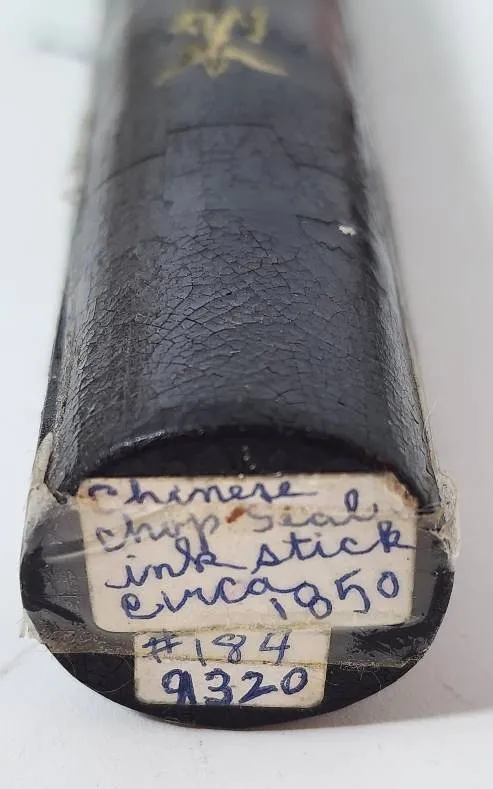 Chinese
chop seal
ink stick
circa 1850
#184
9320